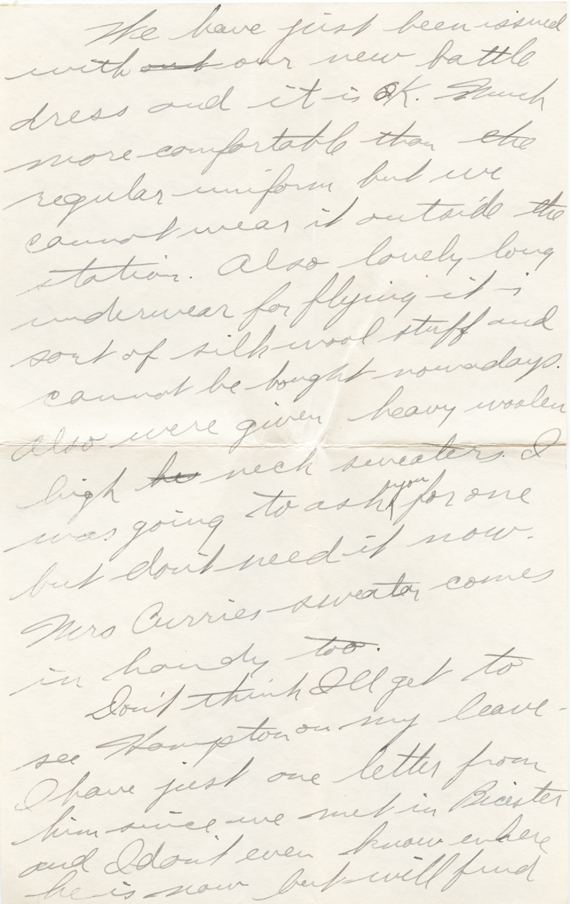 We have just been issued
with out our new battle
dress and it is OK. Much
more comfortable than the
regular uniform but we
cannot wear it outside the
station. Also lovely long
underwear for flying it is
sort of silk wool stuff and
cannot be bought nowadays.
Also were given heavy woolen
high he neck sweaters. I
was going to ask you for one
but don't need it now.
Mrs Curries sweater comes
in handy too.
Don't think I'll get to
see Hampton on my leave -
I have just one letter from
him since we met in Bicester
and I don't even know where
he is now but will find